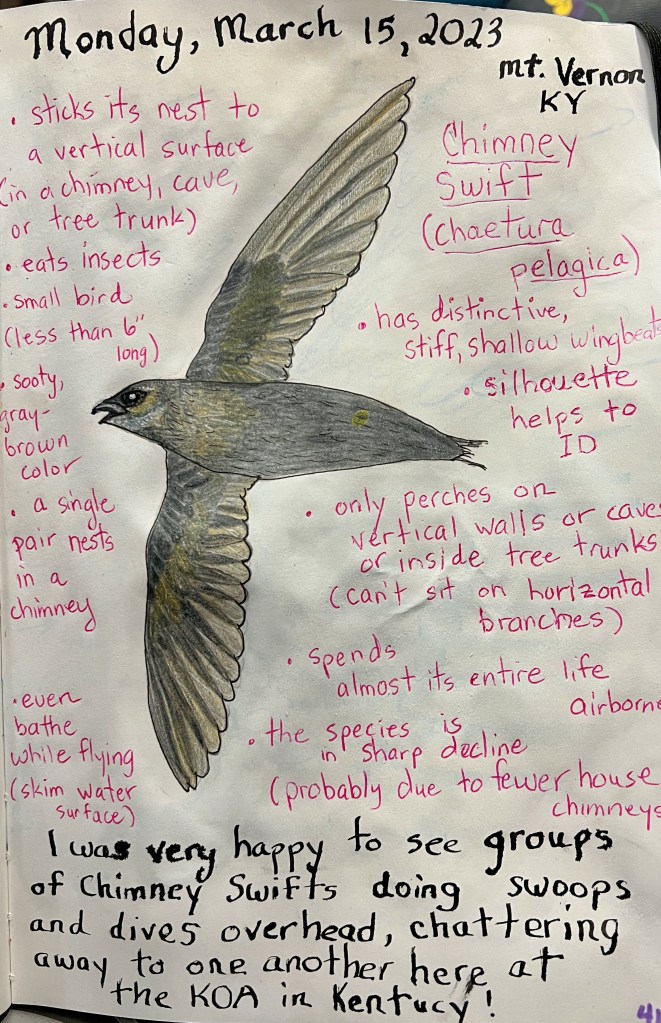 Monday, March 15, 2023
Mt. Vernon
KY
Chimney
Swift
(chaetura
pelagica)
• sticks its nest to
a vertical surface
(in a chimney, cave,
or tree trunk)
• eats insects
• small bird
(less than 6"
long)
• sooty,
gray-
brown
color
• a single
pair nests
in a
chimney
• even
bathe
while flying
(skim water
surface)
• has distinctive,
stiff, shallow wingbeats
• silhouette
helps to
ID
• only perches on
vertical walls or caves
or inside tree trunks
(can't sit on horizontal
branches)
• spends
almost its entire life
airborne
• the species is
in sharp decline
(probably due to fewer house
chimneys
I was very happy to see groups
of Chimney Swifts doing swoops
and dives overhead, chattering
away to one another here at
the KOA in Kentucy!